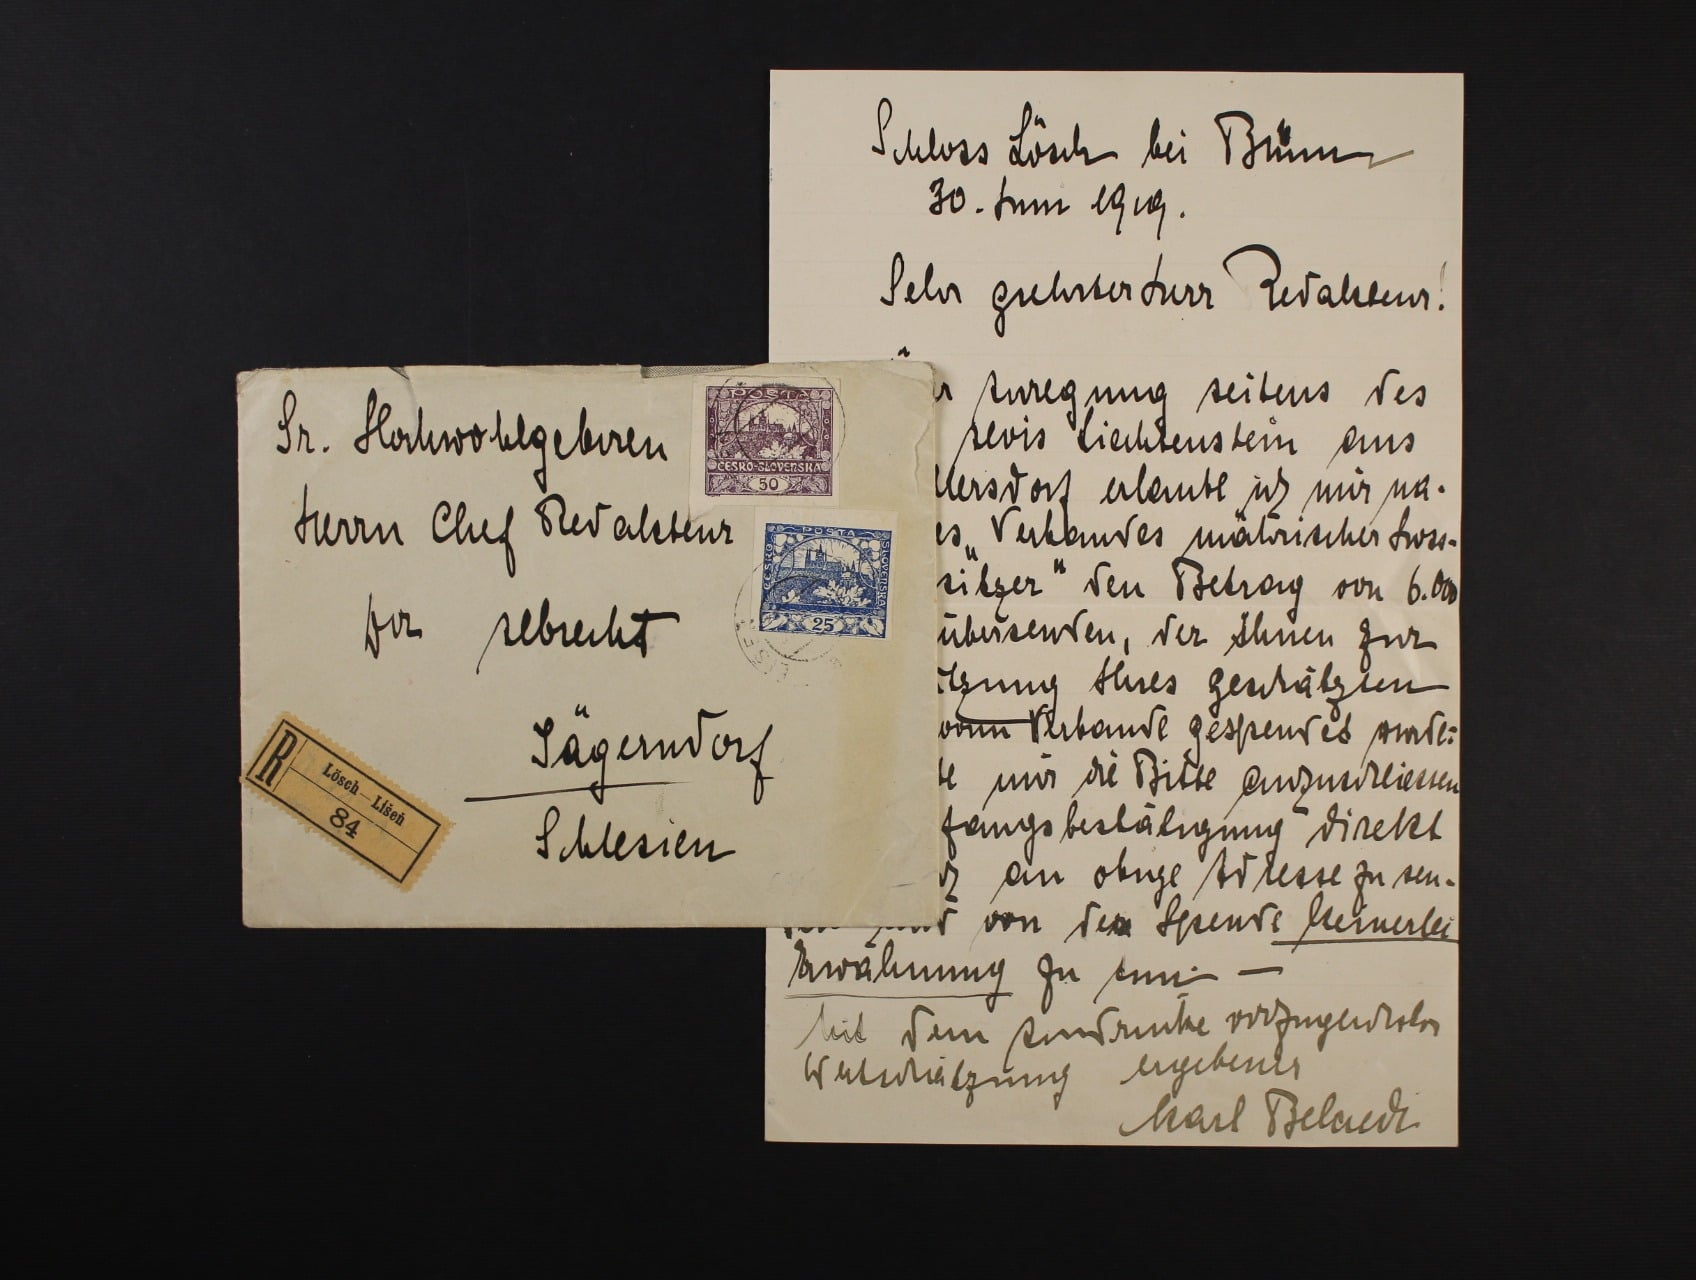 Schloss Lösch bei Brünn
30. Juni 1919.
Sehr geehrter Herr Redakteur!
Anregung seitens des
Liechtenstein aus
llersdorf erlaube ich mir na-
es Verbandes mährischer Gross-
sitzer" den Betrag von 6.000
übersenden, der Ihnen zur
tzung Ihres geschätzten
vom Verbande gespendet wurde:
te mir die Bitte anzuschliessen
fangsbestätigung direkt
an obige Adresse zu sen-
den und von der Spende keinerlei
Erwähnung zu tun. —
Mit dem Ausdrucke vorzüglicher
Wertschätzung ergebener
Karl Belcredi
Sr. Hochwohlgeboren
Herrn Chef Redakteur
Dr Albrecht
Jägerndorf
Schlesien
POSTA
ČESKO-SLOVENSKÁ
50
POSTA
ČESKO SLOVENSKÁ
25
R
Lösch–Líšeň
84